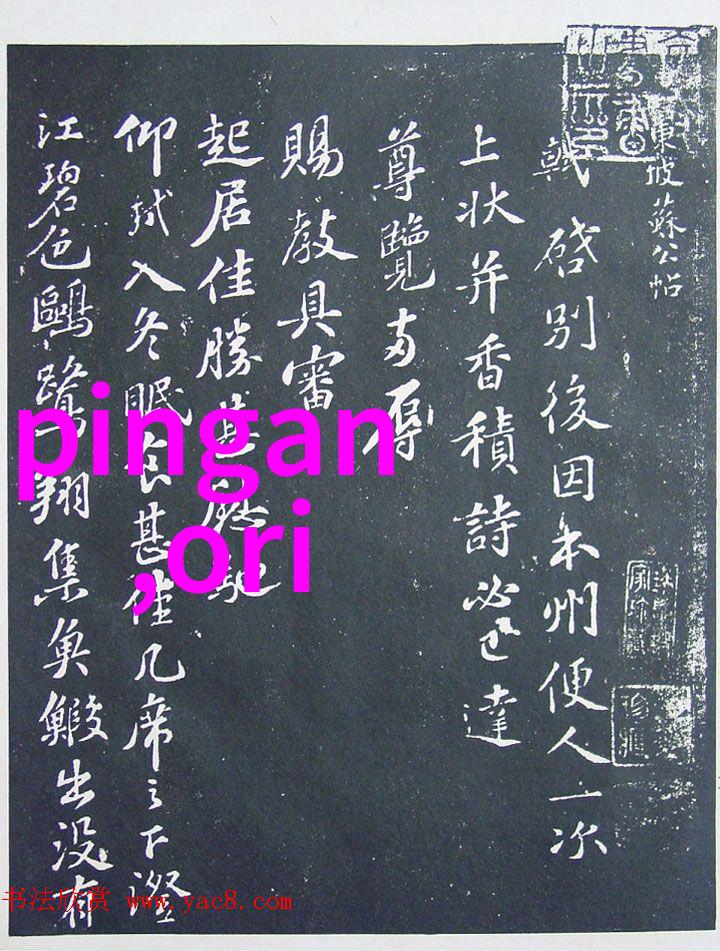 東坡蘇公帖
軾啓別後因本州便人一次
上狀并香積詩必已達
尊覽辱
賜教具審
起居佳勝甚慰馳
仰軾入冬眠食甚佳几席之下澄
江碧色鷗鷺翔集魚鰕出没有
pingan
,ori
书法欣赏 www.yac8.com